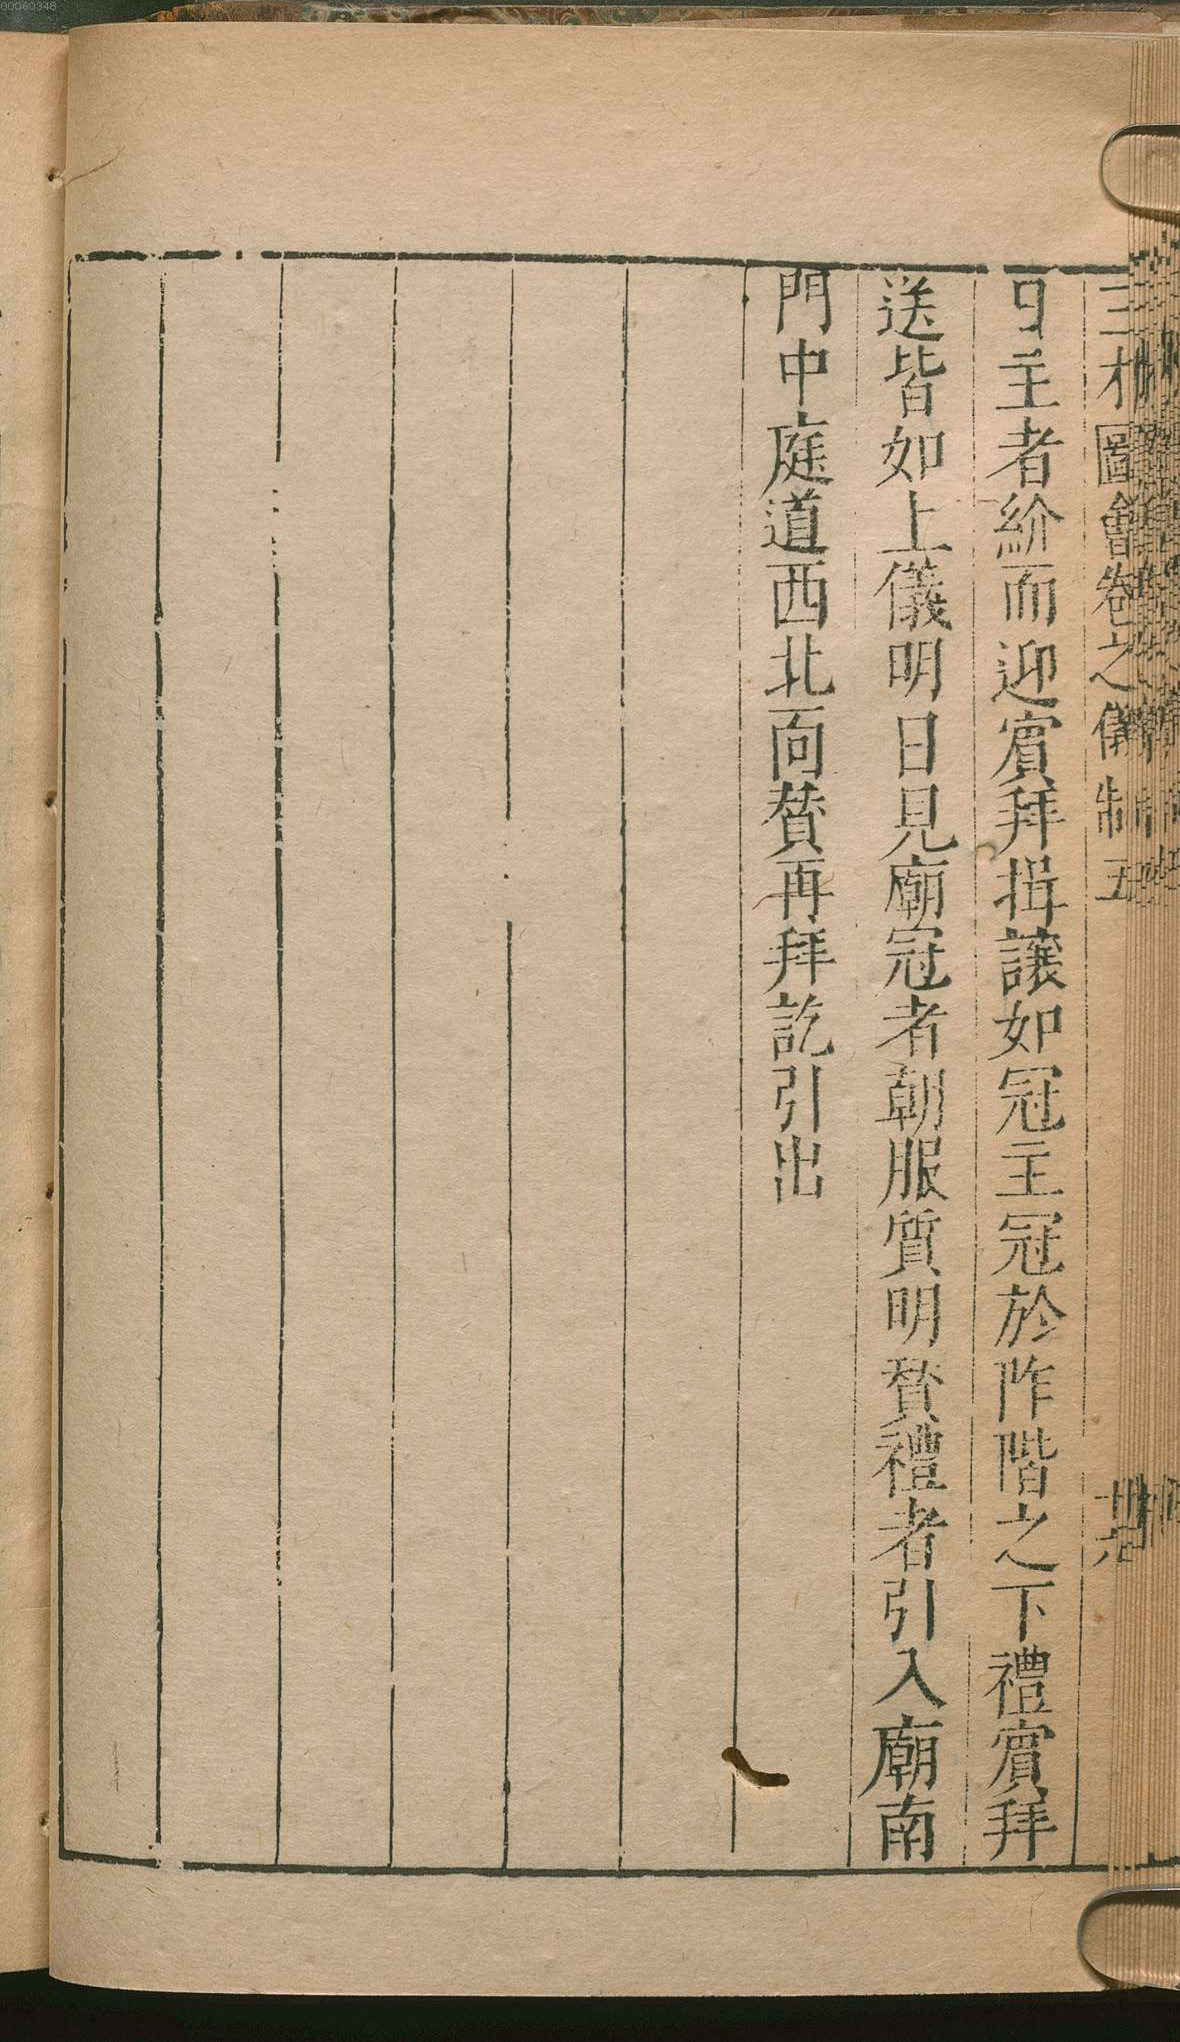 三才圖會卷之儀制五
主者紒而迎賓拜揖讓如冠主冠於阼階之下禮賓拜
送皆如上儀明日見廟冠者朝服質明贊禮者引入廟南
門中庭道西北面贊再拜訖引出
00060348